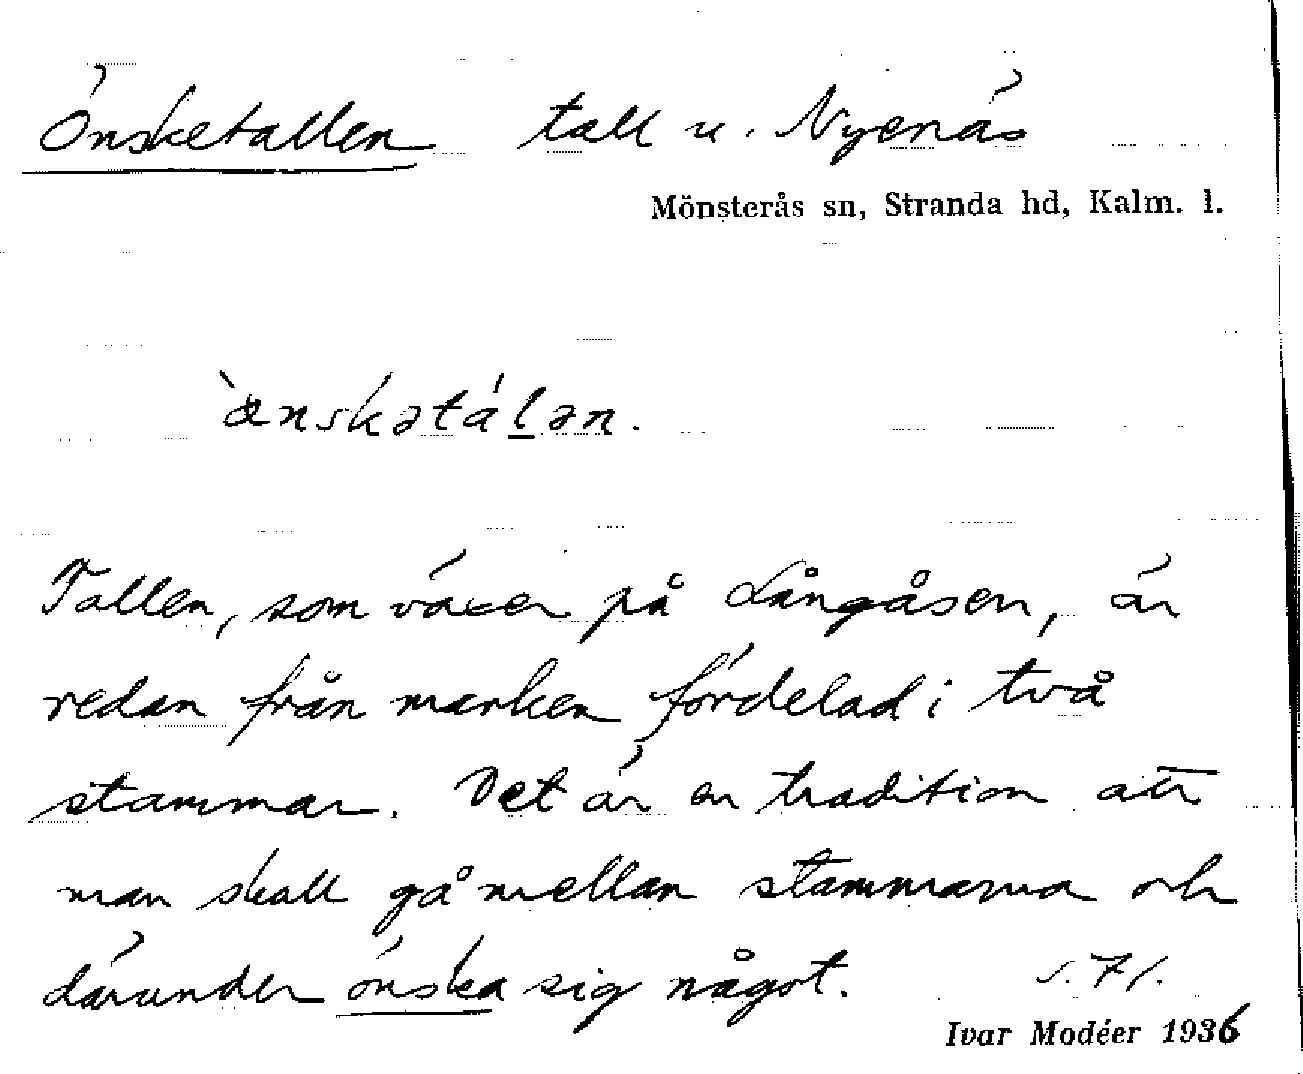 Önsketallen tall u. Nyenäs
Mönsterås sn, Stranda hd, Kalm. l.
ànskətál̲ən.
Tallen, som växer på Långåsen, är
redan från marken fördelad i två
stammar. Det är en tradition att
man skall gå mellan stammarna och
därunder önska sig något. s. 71.
Ivar Modéer 1936